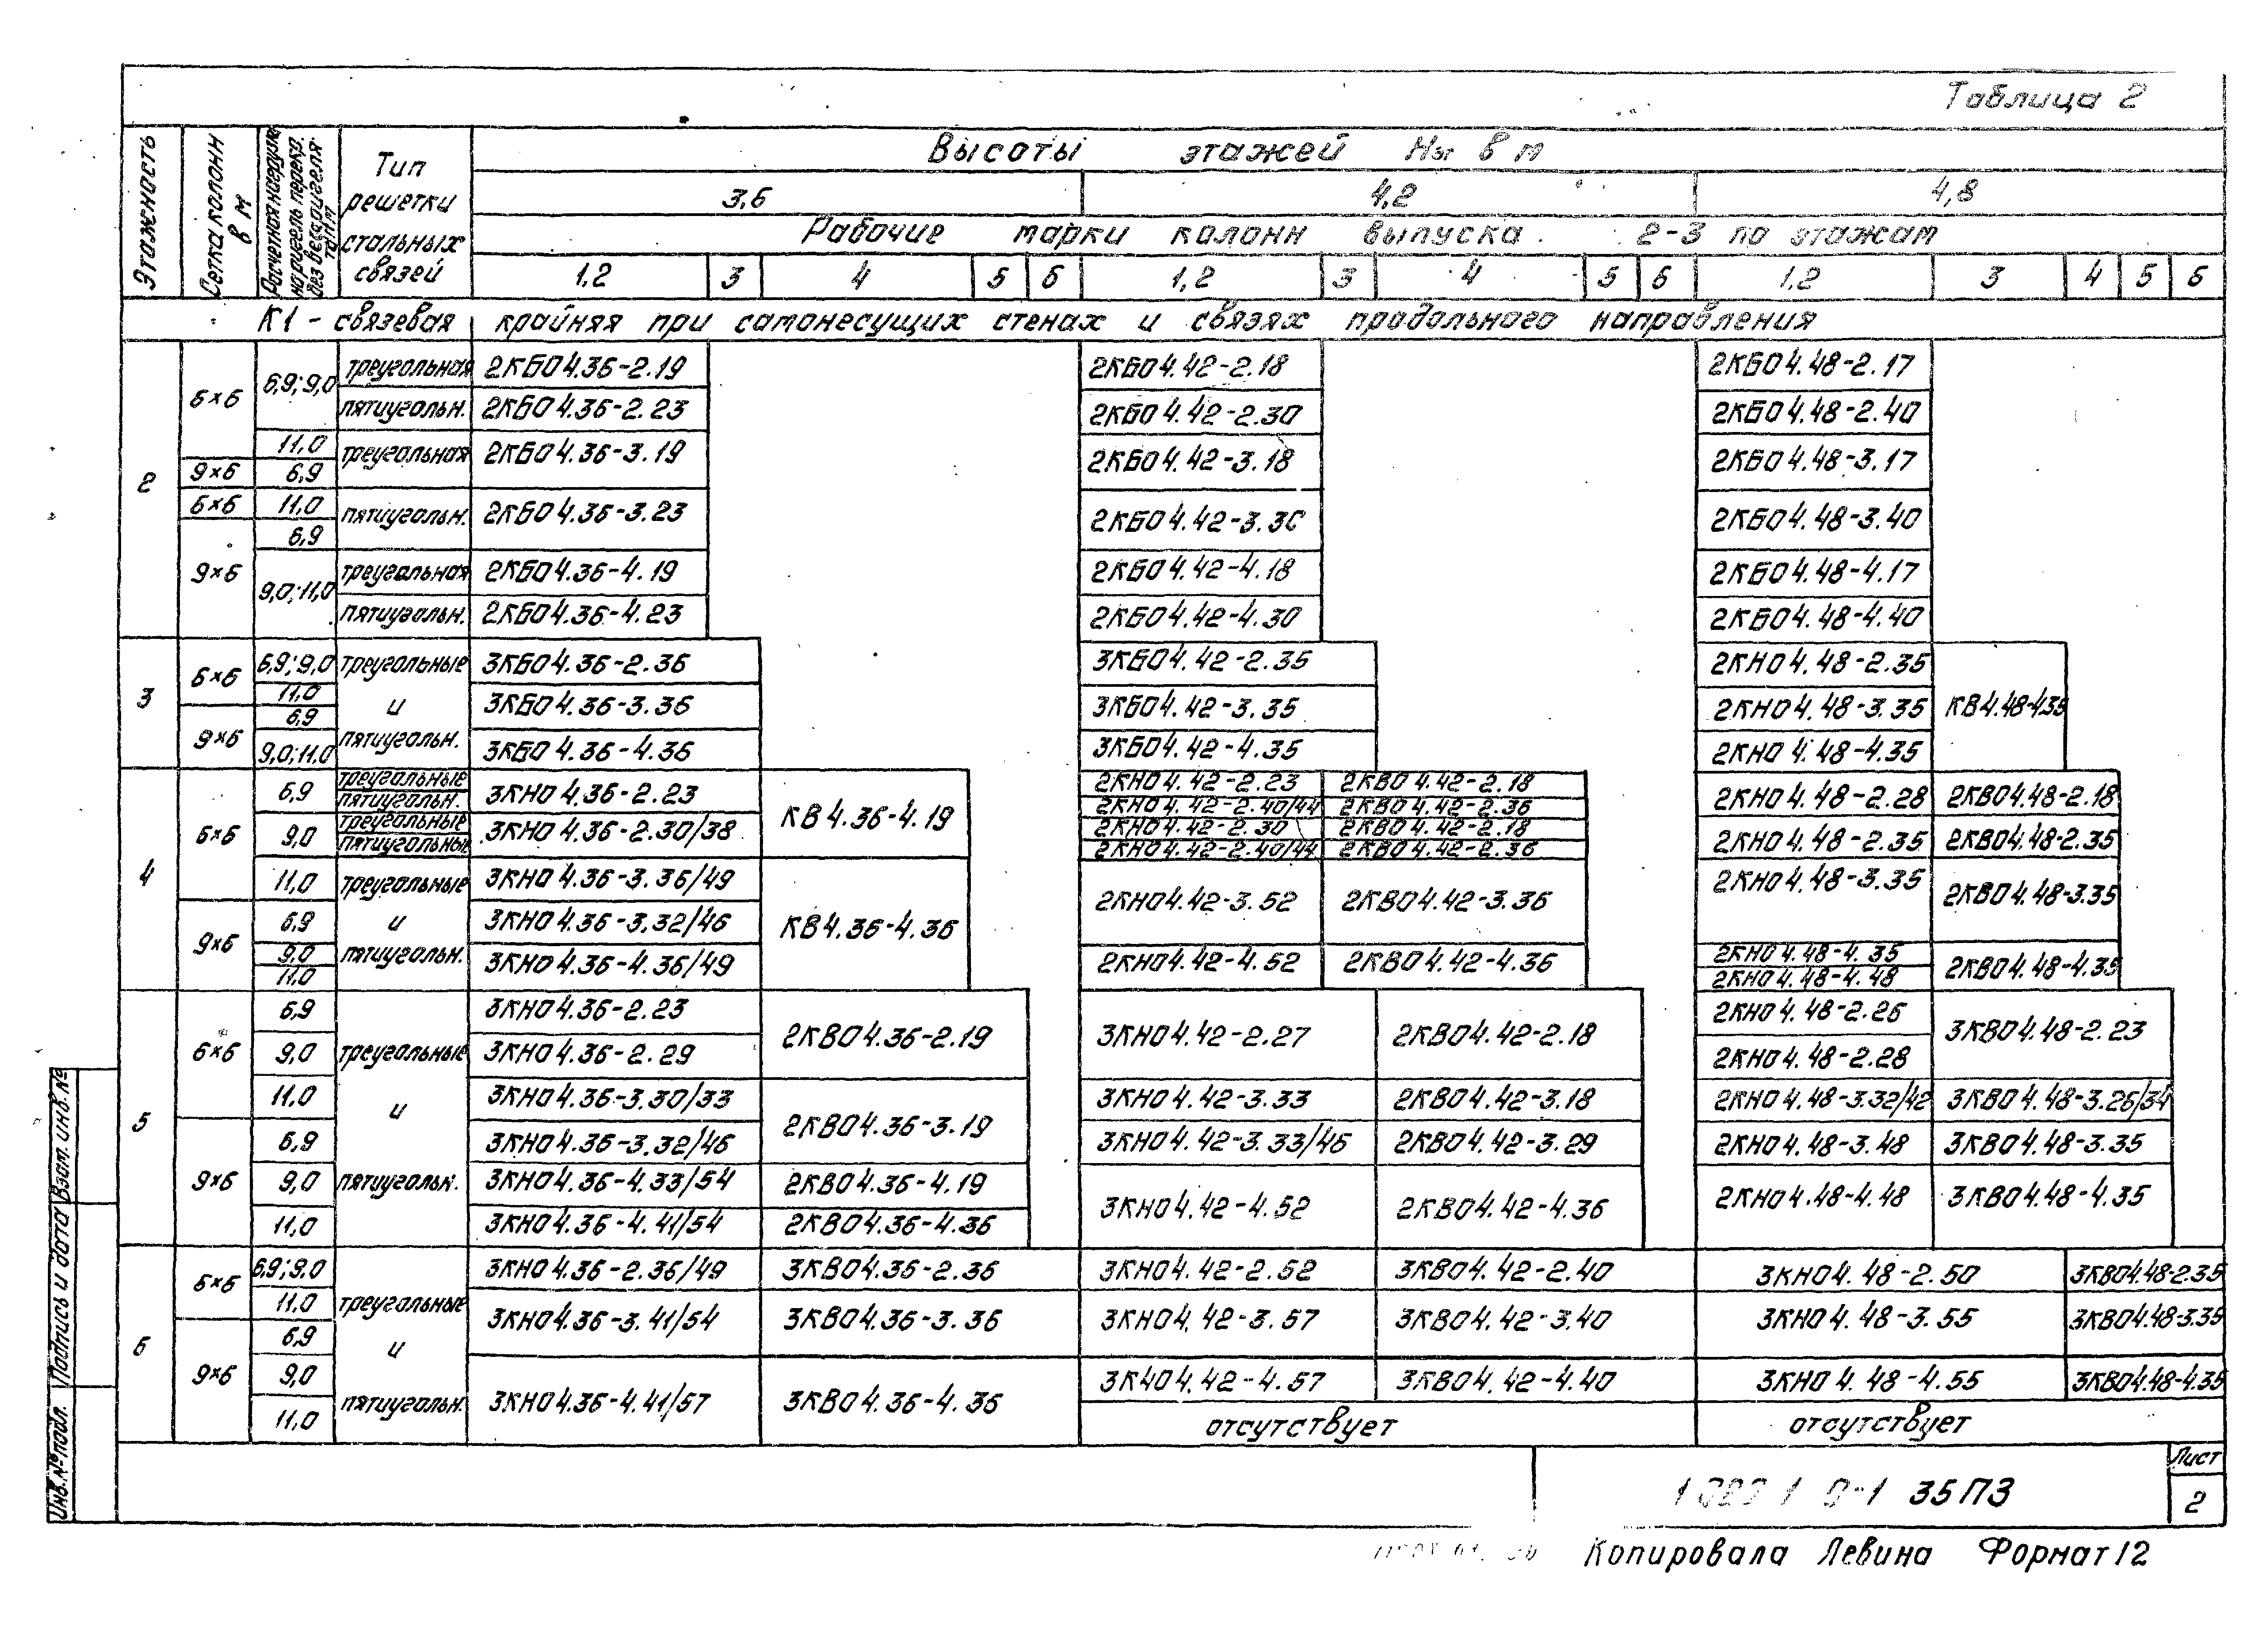 Таблица 2
Этажность
Сетка колонн в м
Расчетная нагрузка на ригель перекр. без веса ригеля тс/м
Тип решетки стальных связей
Высоты этажей Нэт в м
3,6 4,2 4,8
Рабочие марки колонн выпуска 2-3 по этажам
1,2 3 4 5 6 1,2 3 4 5 6 1,2 3 4 5 6
К1 - связевая крайняя при самонесущих стенах и связях продольного направления
2
6×6 6,9; 9,0 треугольная 2КБО4.36-2.19 2КБО4.42-2.18 2КБО4.48-2.17
пятиугольн. 2КБО4.36-2.23 2КБО4.42-2.30 2КБО4.48-2.40
11,0 треугольная 2КБО4.36-3.19 2КБО4.42-3.18 2КБО4.48-3.17
9×6 6,9
6×6 11,0 пятиугольн. 2КБО4.36-3.23 2КБО4.42-3.30 2КБО4.48-3.40
9×6 6,9
9,0; 11,0 треугольная 2КБО4.36-4.19 2КБО4.42-4.18 2КБО4.48-4.17
пятиугольн. 2КБО4.36-4.23 2КБО4.42-4.30 2КБО4.48-4.40
3
6×6 6,9; 9,0 треугольные 3КБО4.36-2.36 3КБО4.42-2.35 2КНО4.48-2.35
11,0 и 3КБО4.36-3.36 3КБО4.42-3.35 2КНО4.48-3.35 КВ4.48-4.35
9×6 6,9
9,0; 11,0 пятиугольн. 3КБО4.36-4.36 3КБО4.42-4.35 2КНО4.48-4.35
4
6×6 6,9 треугольные 3КНО4.36-2.23 КВ4.36-4.19 2КНО4.42-2.23 2КВО4.42-2.18 2КНО4.48-2.28 2КВО4.48-2.18
пятиугольн. 2КНО4.42-2.40/44 2КВО4.42-2.36
9,0 треугольные 3КНО4.36-2.30/38 2КНО4.42-2.30 2КВО4.42-2.18 2КНО4.48-2.35 2КВО4.48-2.35
пятиугольные 2КНО4.42-2.40/44 2КВО4.42-2.36
11,0 треугольные 3КНО4.36-3.36/49 КВ4.36-4.36 2КНО4.42-3.52 2КВО4.42-3.36 2КНО4.48-3.35 2КВО4.48-3.35
9×6 6,9 и 3КНО4.36-3.32/46
9,0 пятиугольн. 3КНО4.36-4.36/49 2КНО4.42-4.52 2КВО4.42-4.36 2КНО4.48-4.35 2КВО4.48-4.35
11,0 2КНО4.48-4.48
5
6×6 6,9 треугольные 3КНО4.36-2.23 2КВО4.36-2.19 3КНО4.42-2.27 2КВО4.42-2.18 2КНО4.48-2.26 3КВО4.48-2.23
9,0 3КНО4.36-2.29 2КНО4.48-2.28
11,0 и 3КНО4.36-3.30/33 2КВО4.36-3.19 3КНО4.42-3.33 2КВО4.42-3.18 2КНО4.48-3.32/42 3КВО4.48-3.26/34
9×6 6,9 3КНО4.36-3.32/46 3КНО4.42-3.33/46 2КВО4.42-3.29 2КНО4.48-3.48 3КВО4.48-3.35
9,0 пятиугольн. 3КНО4.36-4.33/54 2КВО4.36-4.19 3КНО4.42-4.52 2КВО4.42-4.36 2КНО4.48-4.48 3КВО4.48-4.35
11,0 3КНО4.36-4.41/54 2КВО4.36-4.36
6
6×6 6,9; 9,0 треугольные 3КНО4.36-2.36/49 3КВО4.36-2.36 3КНО4.42-2.52 3КВО4.42-2.40 3КНО4.48-2.50 3КВО4.48-2.35
11,0 и 3КНО4.36-3.41/54 3КВО4.36-3.36 3КНО4.42-3.57 3КВО4.42-3.40 3КНО4.48-3.55 3КВО4.48-3.35
9×6 6,9
9,0 пятиугольн. 3КНО4.36-4.41/57 3КВО4.36-4.36 3К4О4.42-4.57 3КВО4.42-4.40 3КНО4.48-4.55 3КВО4.48-4.35
11,0 отсутствует отсутствует
Инв.№ подл. Подпись и дата Взам. инв. №
35ПЗ
Лист
2
Копировала Левина Формат 12